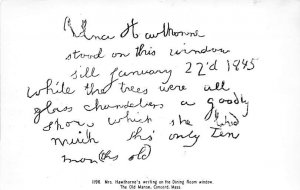 Una Hawthorne
stood on this window
sill January 22'd 1845
while the trees were all
glass chandeliers a goodly
show which she liked
much tho' only ten
months old
1196 Mrs. Hawthorne's writing on the Dining Room window.
The Old Manse, Concord, Mass.